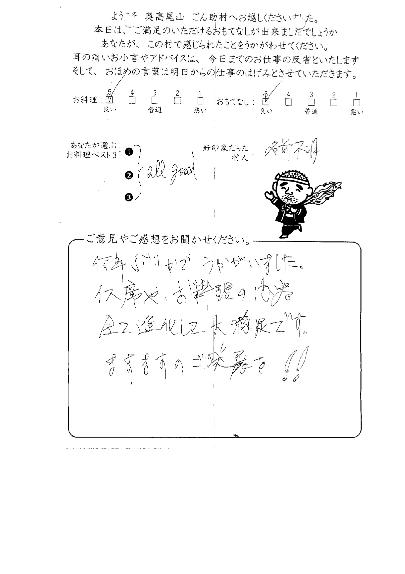 ようこそ 奥高尾山 ごん助村へお越しくださいました。
本日は、ご満足のいただけるおもてなしが出来ましたでしょうか
あなたが、この村で感じられたことをうかがわせてください。
耳の痛いお小言やアドバイスは、今日までのお仕事の反省といたします
そして、おほめの言葉は明日からの仕事のはげみとさせていただきます。
お料理 5 4 3 2 1 おもてなし 5 4 3 2 1
良い 普通 悪い 良い 普通 悪い
あなたが選ぶ
お料理ベスト3
❶
❷ all good
❸
好印象だった
村人
名前不明
ご意見やご感想をお聞かせください。
ぶりかで うかがいました。
全て進化して大満足です。
ますますのご発展を!!